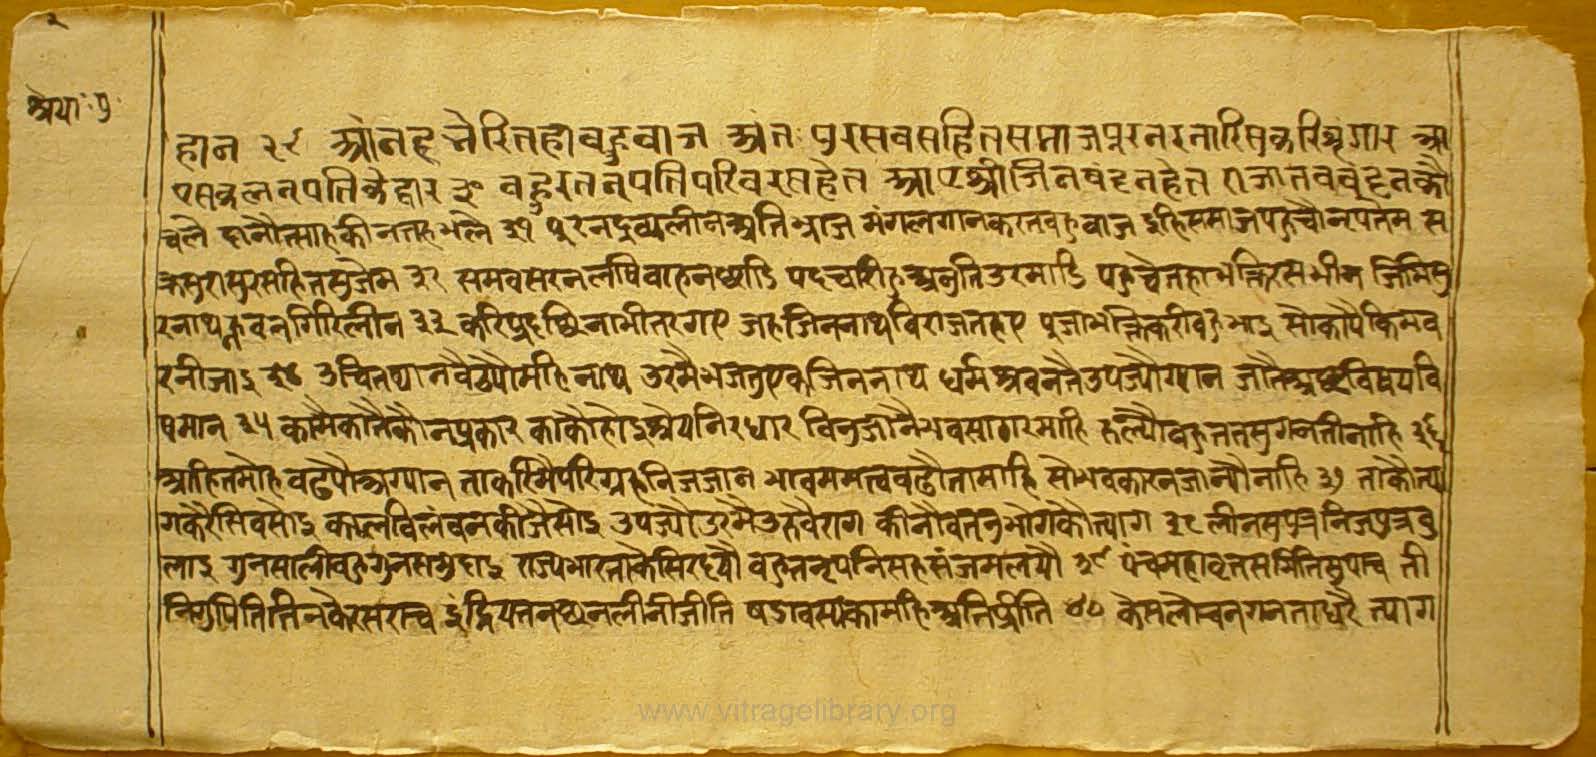 २
श्रेया॰ पु॰
हान २९ आंनद भेरि तहा वहु वाज अंतःपुर सब सहित समाज पुर नर नारि सुकरि श्रृंगार आ
ए सकल नृपति के द्वार ३० वहुरत नृपति परिवर सहेत आए श्री जिन वंदन हेत राजा तव वंदन कौ
चलै दानौत्साह कीन तह भलै ३१ पुर नर द्रव्य लीन अति भ्राज मंगल गान करत वहु वाज इहि समाज पहुचौ नृप तेम स
क्र सुरासुर सहित सु जेम ३२ समवसरन लषि वाहन छाडि पद चारी ह्व अनुति उर माडि पहुचे तहा भक्ति रस भीन जिमि सु
रनाथ कृवन गिरि लीन ३३ करि प्रदछिना भीतर गए जह जिन नाथ विराजत हए पूजा भक्ति करी वहु भाइ सो कापै किम व
रनी जाइ ३४ उचित थान वैठ्यौ महि नाथ उर मै भजतु एक जिन नाथ धर्म श्रवन तै उपज्यौ ग्यान जानै अथिर विषय वि
षमान ३५ का मै का तै कौन प्रकार काकौ होइ श्रेय निरधार विनु जानै भव सागर माहि रुल्यौ वहुत तसु गनती नाहि ३६
अहित मोह वढ्यौ अग्यान ता करि मै परिग्रह निज जान भाव ममत्व वढौ ता माहि सो भव कारन जान्यौ नाहि ३७ ताकौ त्या
ग करै सिव सोइ काल विलंव न कीजै सोइ उपज्यौ उर मै उह वैराग कीनौ व तनु भोग कौ त्याग ३८ लीन सुपुत्र निज पुत्र वु
लाइ गुनसाली वहु गुन समुदाइ राज्य भार ताकै सिर दयौ वहुत नृपनि सह संजम लयौ ३९ पंच महाव्रत समिति सु पाच ती
नि गुपिति तिन कै रस राच इंद्रिय तन छन लीनी जीति षडावस्यका महि अति प्रीति ४० केस लोच नगनता धरै त्याग
www.vitragelibrary.org